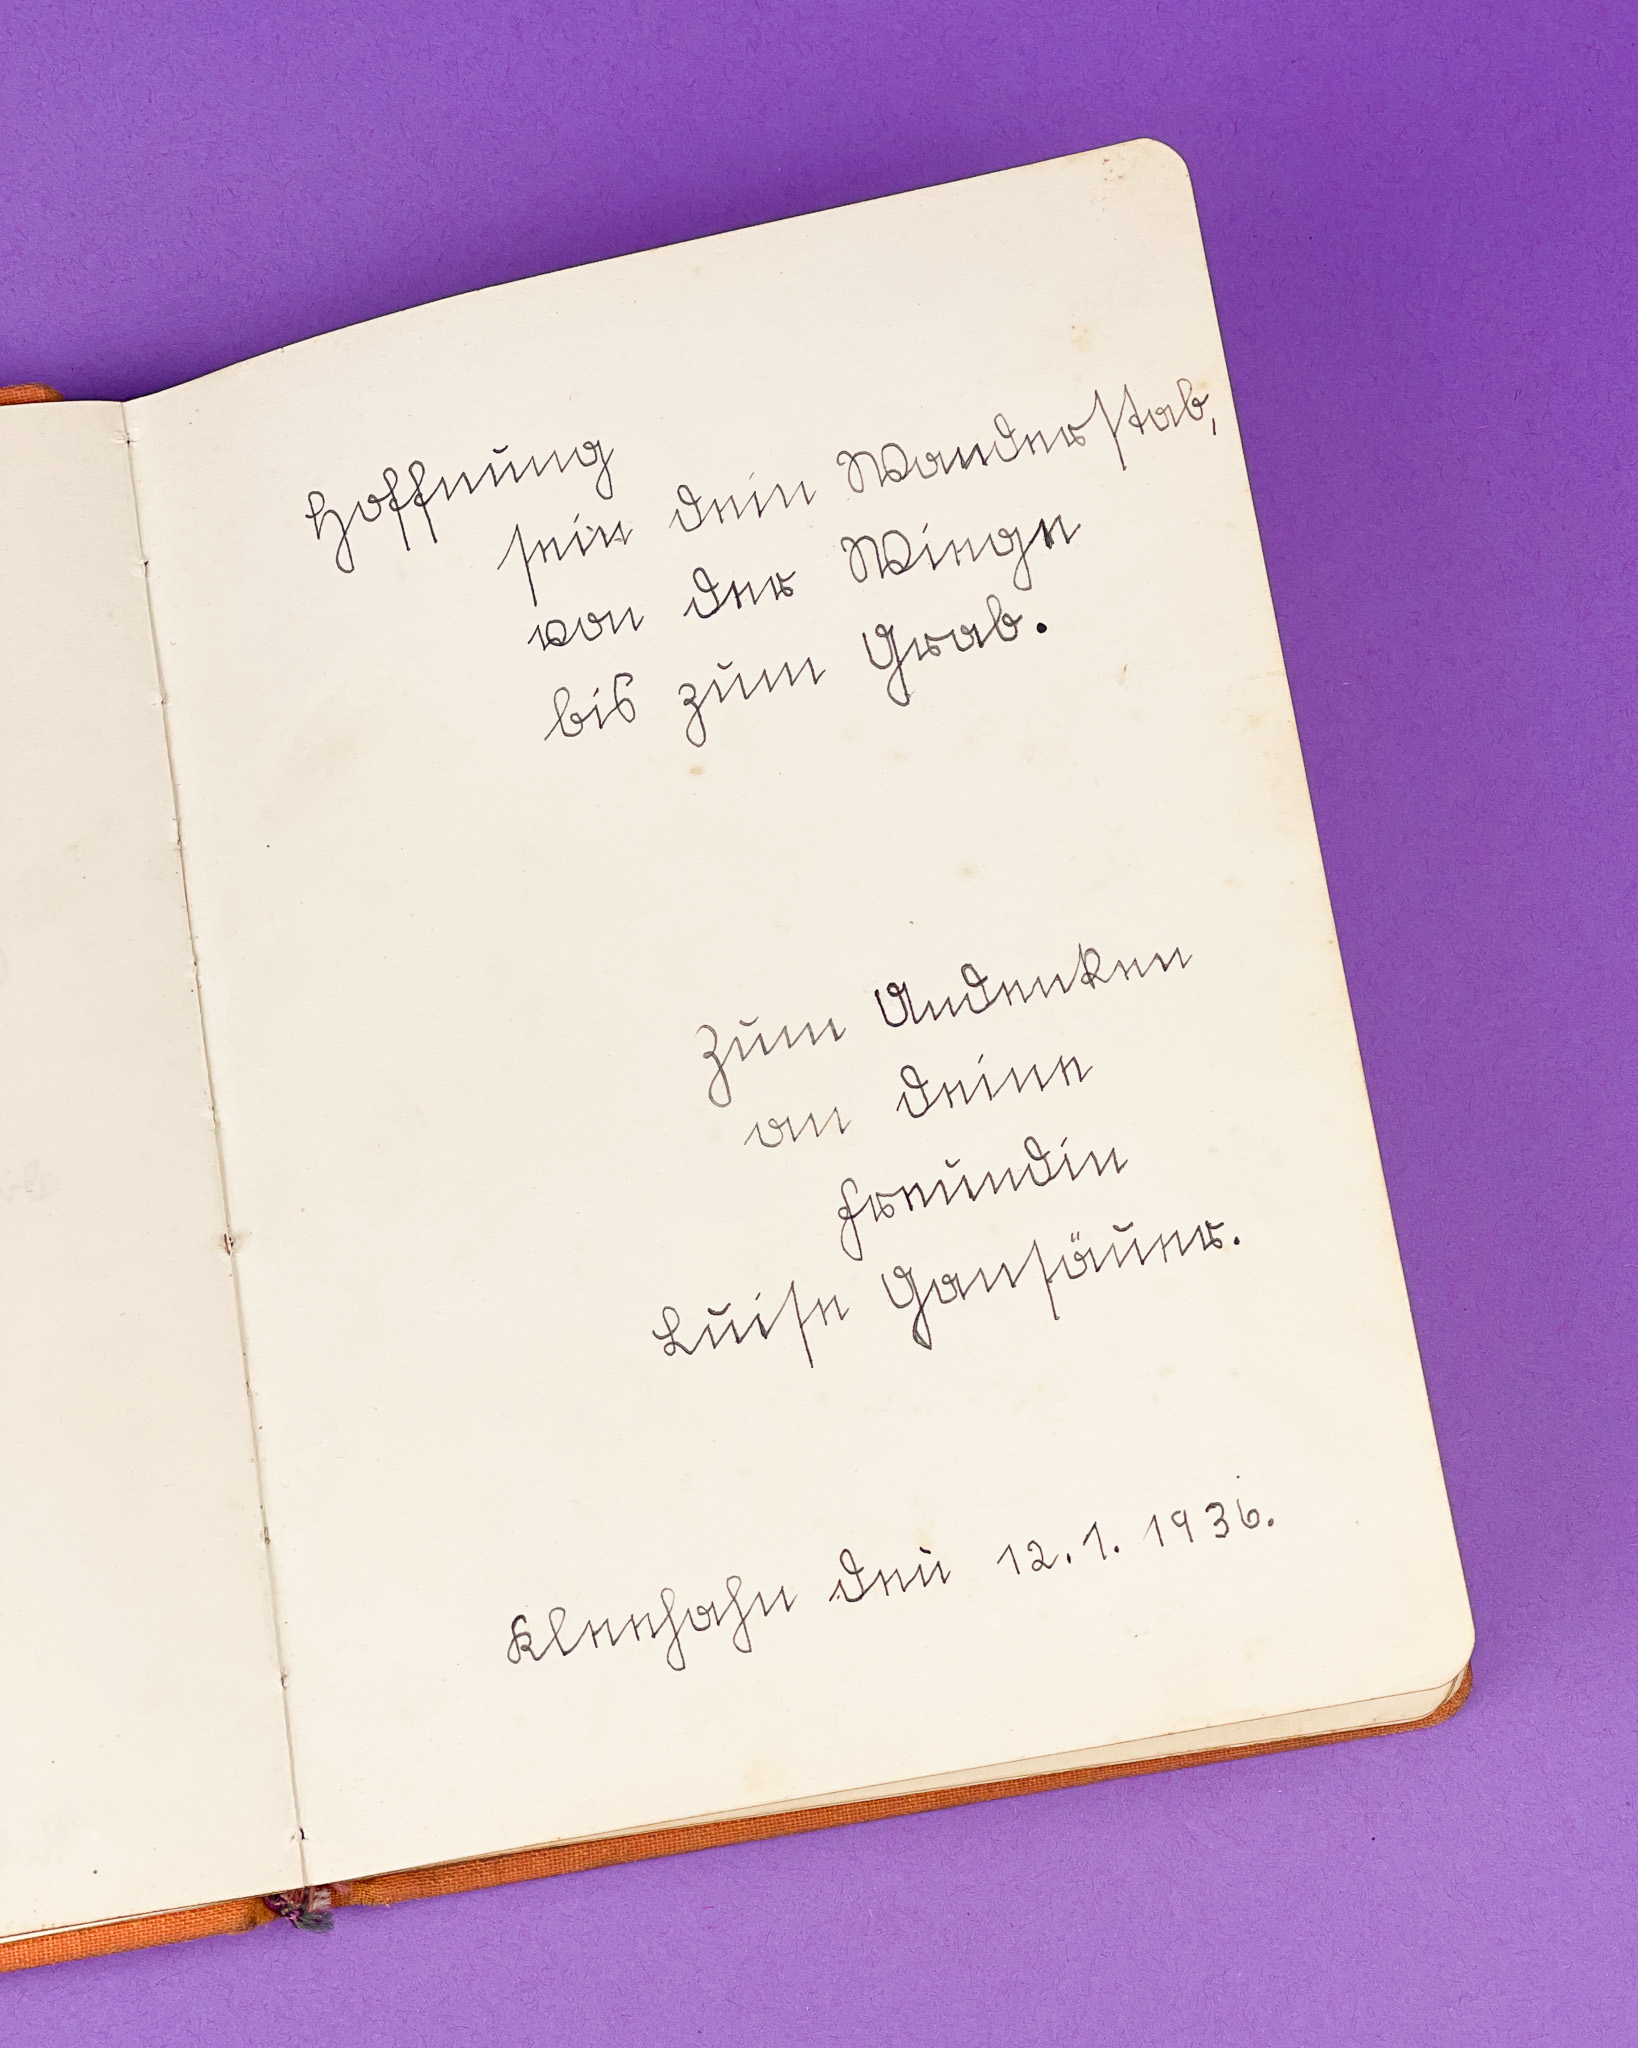 Hoffnung
seie dein Wanderstab,
von der Wiege
bis zum Grab.
Zum Andenken
an deine
Freundin
Luise Gansäuer.
Kleehahn den 12.1.1936.